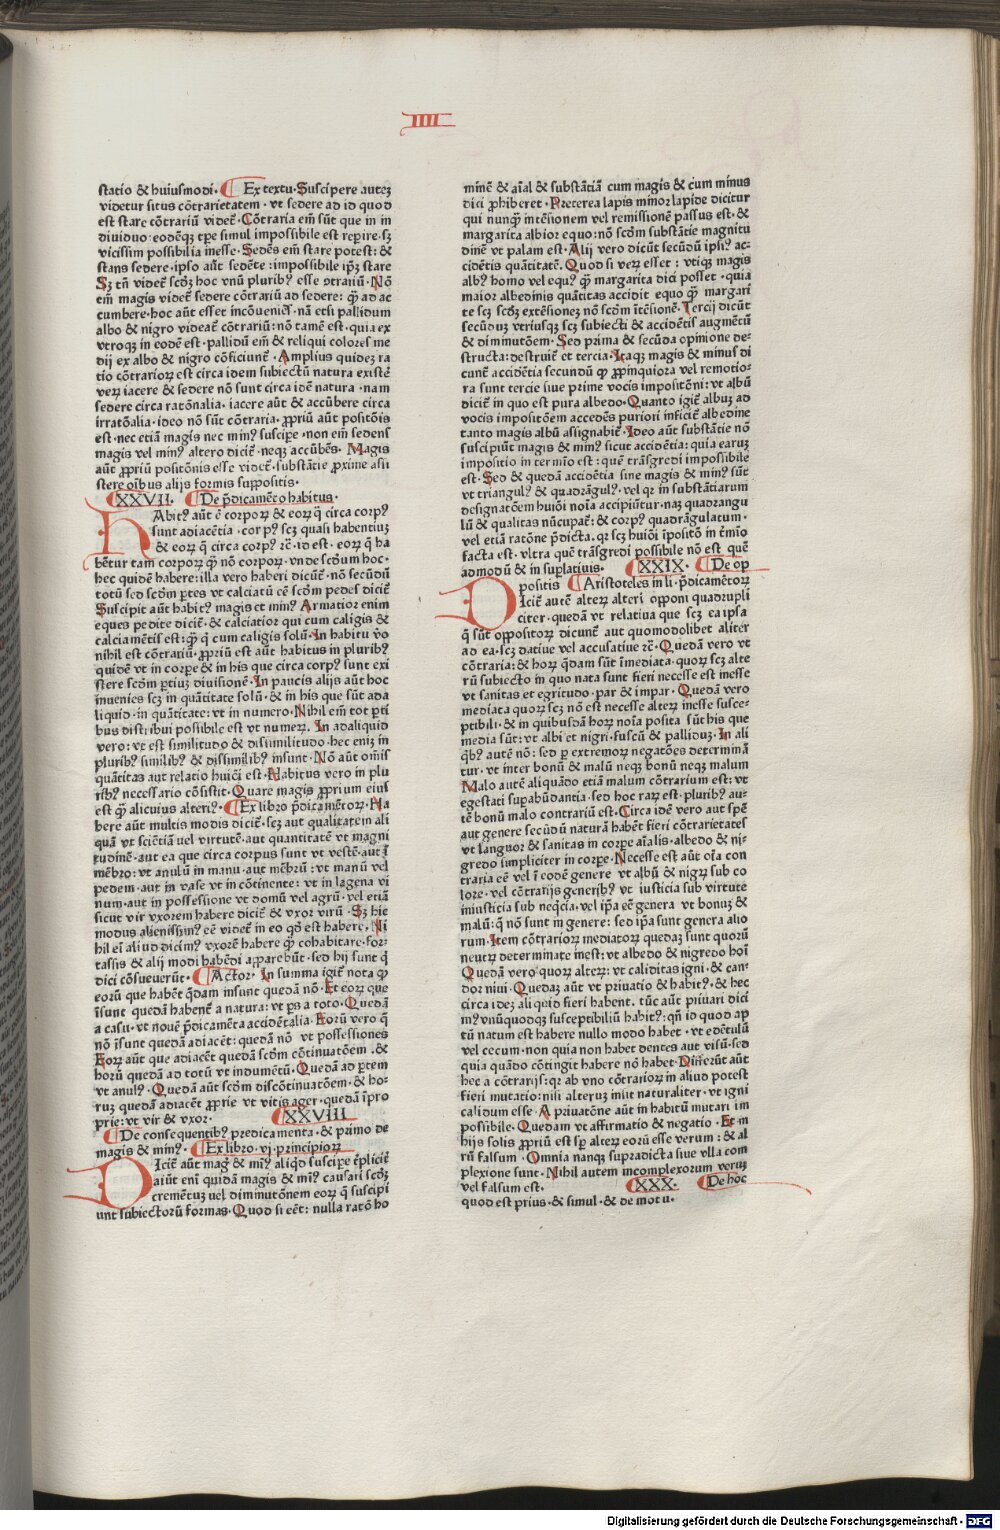 IIII
statio & huiusmodi. Ex textu. Suscipere autez
videtur situs cõtrarietatem. vt sedere ad id quod
est stare cõtrariũ videt̃. Cõtraria em̃ sũt que in in
diuiduo eodẽqꝫ tꝑe simul impossibile est reperire. sꝫ
vicissim possibilia inesse. Sedẽs em̃ stare potest: &
stans sedere. ipso aũt sedẽte: impossibile ipꝫ stare
Sꝫ tñ videt̃ scdꝫ hoc vnũ pluribꝰ esse ꝯtrariũ. Nõ
em̃ magis videt̃ sedere cõtrariũ ad sedere: qꝫ ad ac
cumbere. hoc aũt esset incõueniẽs. nã etsi pallidum
albo & nigro videat̃ cõtrariũ: nõ tamẽ est. quia ex
vtroqꝫ in eodẽ est. pallidũ em̃ & reliqui colores me
dij ex albo & nigro cõficiunt̃. Amplius quidez ra
tio cõtrarioꝝ est circa idem subiectũ natura existẽ
veꝝ iacere & sedere nõ sunt circa idẽ natura. nam
sedere circa ratõnalia. iacere aũt & accũbere circa
irratõnalia. ideo nõ sũt cõtraria. ꝓpriũ aũt positõis
est. nec etiã magis nec minꝰ suscipe. non em̃ sedens
magis vel minꝰ altero dicit̃. neqꝫ accũbẽs. Magis
aũt ꝓpriũ positõnis esse videt̃. substãtie ꝓxime assi
stere oĩbus alijs formis suppositis.
XXVII. De p̃dicamẽto habitus.
HAbitꝰ aũt ẽ corpoꝝ & eoꝝ q̃ circa corpꝰ
sunt adiacẽtia. corpꝰ scꝫ quasi habentiuꝫ
& eoꝝ q̃ circa corpꝰ rẽ. id est. eoꝝ q̃ ha
bẽtur tam corpoꝝ qꝫ nõ corpoꝝ. vnde scdum hoc.
hec quidẽ habere: illa vero haberi dicũt̃. nõ secũdũ
totũ sed scdõm ꝑtes vt calciatũ cẽ scdõm pedes dicit̃
Suscipit aũt habitꝰ magis et minꝰ Armatior enim
eques pedite dicit̃. & calciatior qui cum caligis &
calciamẽtis est: qꝫ q̃ cum caligis solũ. In habitu ṽo
nihil est cõtrariũ. ꝓpriũ est aũt habitus in pluribꝰ
quidẽ vt in corpe & in his que circa corpꝰ sunt exi
stere scdõm ꝑtiuꝫ diuisionẽ. In paucis alijs aũt hoc
inuenies scꝫ in quãtitate solũ. & in his que sũt ada
liquid. in quãtitate: vt in numero. Nihil em̃ tot ꝑti
bus distribui possibile est vt numeꝝ. In adaliquid
vero: vt est similitudo & dissimilitudo. hec eniꝫ in
pluribꝰ similibꝰ & dissimilibꝰ insunt. Nõ aũt om̃is
quãtitas aut relatio huic̃i est. Habitus vero in plu
ribꝰ necessario cõsistit. Quare magis ꝓprium eius
est qꝫ alicuius alteriꝰ. Ex libro p̃dicamẽtoꝝ. Ha
bere aũt multis modis dicit̃. scꝫ aut qualitatem ali
quã vt sciẽtiã vel virtutẽ. aut quantitatẽ vt magni
tudinẽ. aut ea que circa corpus sunt vt vestẽ. aut ĩ
mẽbro: vt anulũ in manu. aut mẽbrũ: vt manũ vel
pedem. aut in vase vt in cõtinente: vt in lagena vi
num. aut in possessione vt domũ vel agrũ. vel etiã
sicut vir vxorem habere dicit̃ & vxor virũ. Sꝫ hic
modus alienissimꝰ eẽ videt̃ in eo qꝫ est habere. Ni
hil ei aliud dicimꝰ vxorẽ habere qꝫ cohabitare. for
tassis & alij modi habẽdi apparebũt. sed hij sunt q̃
dici cõsueuerũt. Actor. In summa igit̃ nota qꝫ
eorũ que habẽt̃ q̃dam insunt quedã nõ. Et eoꝝ que
ĩsunt quedã habent̃ a natura: vt ꝑs a toto. Quedã
a casu. vt nouẽ p̃dicamẽta accidẽtalia. Eorũ vero q̃
nõ ĩsunt quedã adiacẽt: quedã nõ vt possessiones
Eoꝝ aũt que adiacẽt quedã scdõm cõtinuatõem. &
horũ quedã ad totũ vt indumẽtũ. Quedã ad ꝑtem
vt anulꝰ. Quedã aũt scdõm discõtinuatõem. & ho-
ruꝫ quedã adiacẽt ꝓprie vt vitis ager. quedã ĩpro
prie: vt vir & vxor. XXVIII
De consequentibꝰ predicamenta. & primo de
magis & minꝰ. Ex libro. vj. principioꝝ
DIcit̃ aũt magꝰ & miꝰ aliqd suscipe ẽplicit̃
aiũt eni quidã magis & miꝰ causari scdꝫ
crementuꝫ uel diminutõnem eoꝝ q̃ suscipi
unt subiectorũ formas. Quod si eẽt: nulla ratõ ho
minẽ & aĩal & substãtiã cum magis & cum minus
dici ꝓhiberet. Preterea lapis minor lapide dicitur
qui nunqꝫ intẽsionem vel remissionẽ passus est. &
margarita albior equo: nõ scdõm substãtie magnitu
dinẽ vt palam est. Alij vero dicũt secũdũ ipsiꝰ ac-
cidẽtis quãtitatẽ. Quod si veꝝ esset: vtiqꝫ magis
albꝰ homo vel equꝰ qꝫ margarita dici posset. quia
maior albedinis quãtitas accidit equo qꝫ margari
te scꝫ scdꝫ extẽsionez nõ scdõm ĩtẽsionẽ. Tercij dicũt
secũduꝫ vtriusqꝫ scꝫ subiecti & accidẽtis augmẽtũ
& diminutõem. Sed prima & secũda opinione de-
structa: destruit̃ et tercia. Itaqꝫ magis & minus di
cunt̃ accidẽtia secundũ qꝫ ꝓpinquiora vel remotio-
ra sunt tercie siue prime vocis impositõni: vt albũ
dicit̃ in quo est pura albedo. Quanto igit̃ albuꝫ ad
vocis impositõem accedẽs puriori inficit̃ albedine
tanto magis albũ assignabit̃. Ideo aũt substãtie nõ
suscipiũt magis & minꝰ sicut accidẽtia: quia earuꝫ
impositio in termĩo est: quẽ trãsgredi impossibile
est. Sed & quedã accidẽtia sine magis & minꝰ sũt
vt triangulꝰ & quadrãgulꝰ. vel qꝛ in substãtiarum
designatõem huiõi noĩa accipiũtur. naꝫ quadrangu
lũ & qualitas nũcupat̃: & corpꝰ quadrãgulatum.
vel etiã ratõne p̃dicta. qꝛ scꝫ huiõi ĩpositõ in t̃mĩo
facta est. vltra quẽ trãsgredi possibile nõ est quẽ
admodũ & in suꝑlatiuis. XXIX. De op
positis Aristoteles in li. p̃dicamẽtoꝝ
DIcit̃ autẽ alteꝝ alteri opponi quadrupli
citer. quedã vt relatiua que scꝫ ea ipsa
q̃ sũt oppositoꝝ dicunt̃ aut quomodolibet aliter
ad ea. scꝫ datiue vel accusatiue rẽ. Quedã vero vt
cõtraria: & hoꝝ q̃dam sũt ĩmediata. quoꝝ scꝫ alte
rũ subiecto in quo nata sunt fieri necesse est inesse
vt sanitas et egritudo. par & impar. Quedã vero
mediata quoꝝ scꝫ nõ est necesse alteꝝ inesse susce-
ptibili. & in quibusdã hoꝝ noĩa posita sũt his que
media sũt: vt albi et nigri. fuscũ & palliduꝫ. In ali
q̃bꝰ autẽ nõ: sed ꝑ extremoꝝ negatões determinã
tur. vt inter bonũ & malũ neqꝫ bonũ neqꝫ malum
Malo autẽ aliquãdo etiã malum cõtrarium est: vt
egestati suꝑabũdantia. sed hoc raꝝ est. pluribꝰ au-
tẽ bonũ malo contrariũ est. Circa idẽ vero aut spẽ
aut genere secũdũ naturã habẽt fieri cõtrarietates
vt languor & sanitas in corpe aĩalis. albedo & ni-
gredo simpliciter in corpe. Necesse est aũt oĩa con
traria eẽ vel ĩ eodẽ genere vt albũ & nigꝝ sub co
lore. vel cõtrarijs generibꝰ vt iusticia sub virtute
iniusticia sub neq̃cia. vel ip̃a eẽ genera vt bonuꝫ &
malũ: q̃ nõ sunt in genere: sed ip̃a sunt genera alio
rum. Item cõtrarioꝝ mediatoꝝ quedaꝫ sunt quorũ
neutꝝ determinate inest: vt albedo & nigredo hoĩ
Quedã vero quoꝝ alteꝝ: vt caliditas igni. & can-
dor niui. Quedaꝫ aũt vt priuatio & habitꝰ. & hec
circa idez aliquid fieri habent. tũc aũt priuari dici
mꝰ vnũquodqꝫ susceptibiliũ habitꝰ: qñ id quod ap
tũ natum est habere nullo modo habet. vt edẽtulũ
vel cecum. non quia non habet dentes aut visũ. sed
quia quãdo cõtingit habere nõ habet. Differũt aũt
hec a cõtrarijs: qꝛ ab vno cõtrarioꝝ in aliud potest
fieri mutatio: nisi alteruꝫ insit naturaliter. vt igni
calidum esse. A priuatõne aũt in habitũ mutari im
possibile. Quedam vt affirmatio & negatio. Et in
hijs solis ꝓpriũ est sꝑ alteꝝ eorũ esse verum: & al
rũ falsum. Omnia nanqꝫ supradicta siue vlla com
plexione sunt. Nihil autem incomplexorum veruꝫ
vel falsum est. XXX. De hoc
quod est prius. & simul. & de motu.
Digitalisierung gefördert durch die Deutsche Forschungsgemeinschaft - DFG